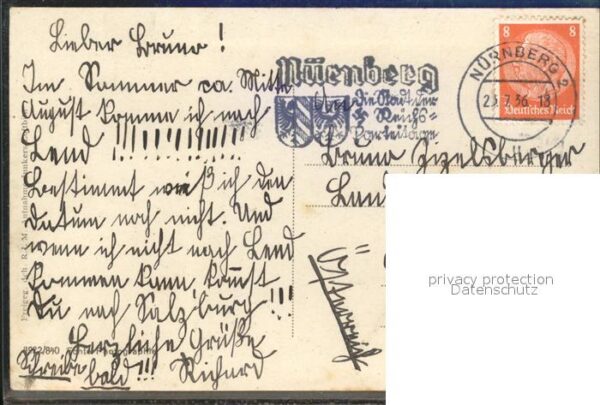 Lieber Bruno!
Im Sommer ca. Mitte
August komme ich nach
Lend !!!!!!!!!!!!
Bestimmt weiß ich den
Datum noch nicht. Und
wenn ich nicht nach Lend
kommen kann, kommst
Du nach Salzburg!!!
Herzliche Grüße
Schreibe bald!!! Richard
Nürnberg
die Stadt der
Reichs-
parteitage
NÜRNBERG 2
23.7.36
8 8
Deutsches Reich
Bruno
Len
Österreich
privacy protection
Datenschutz